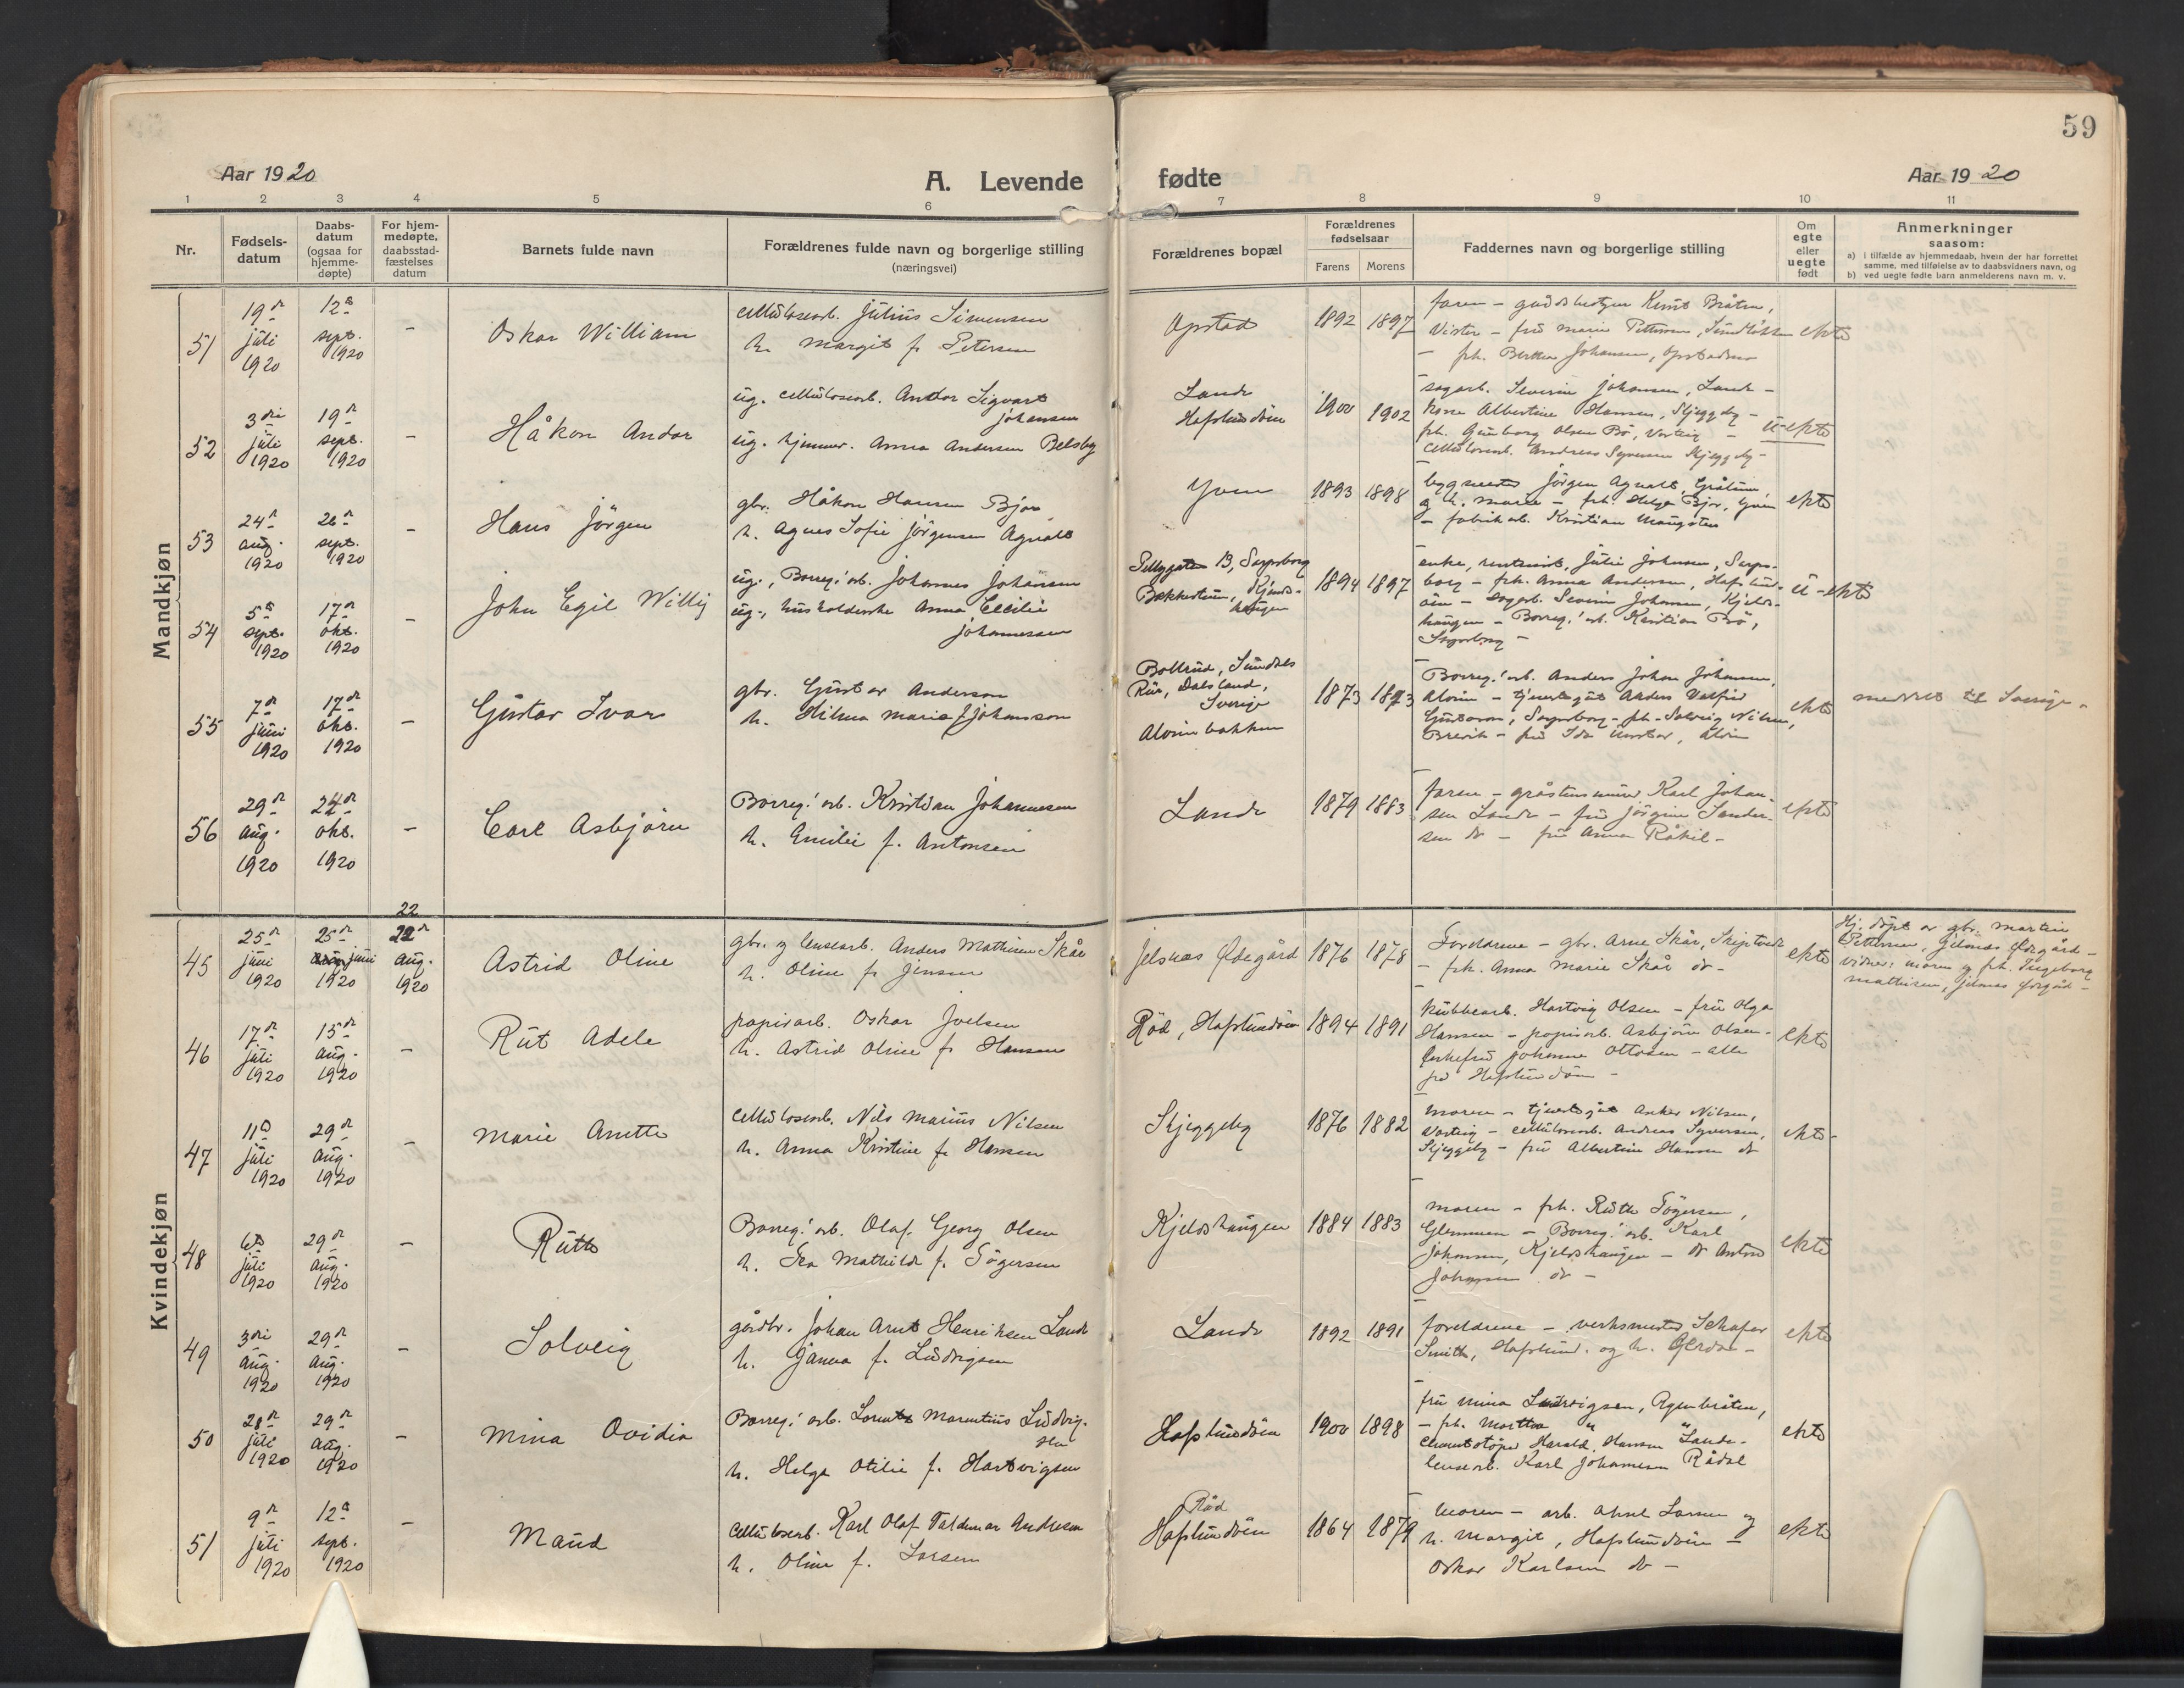 59
Aar 1920
A. Levende fødte
Aar 1920
1 2 3 4 5 6 7 8 9 10 11
Nr.
Fødsels-
datum
Daabs-
datum
(ogsaa for
hjemme-
døpte)
For hjem-
medøpte,
daabsstad-
fæstelses
datum
Barnets fulde navn
Forældrenes fulde navn og borgerlige stilling
(næringsvei)
Forældrenes bopæl
Forældrenes
fødselsaar
Farens Morens
Faddernes navn og borgerlige stilling
Om
egte
eller
uegte
født
Anmerkninger
saasom:
a) i tilfælde av hjemmedaab, hvem der har forrettet
samme, med tilføielse av to daabsvidners navn, og
b) ved uegte fødte barn anmelderens navn m. v.
Mandkjøn
51
19de
juli
1920
12te
sept.
1920
-
Oskar William
cellulosearb. Julius Simensen
h. Margit f. Petersen
Opstad
1892 1897
faren - gaardsbestyrer Knut Bråten,
Vister - fru Marie Pettersen, Sundløkken
- frk. Berthea Johansen, Opstad
ekte
52
3die
juli
1920
19de
sept.
1920
-
Håkon Andor
ug. cellulosearb. Andor Sigvart
Johansen
ug. hjemmev. Anna Andersen Belsby
Lande
Hafslundsøen
1900 1902
sagarb. Severin Johansen, Lande -
kone Albertine Hansen, Skjeggeby -
frk. Gunborg Olsen Bø, Varteig -
cellulosearb. Andreas Syversen Skjeggeby -
u-ekte
53
24de
aug.
1920
26de
sept.
1920
-
Hans Jörgen
gbr. Håkon Hansen Bjør
h. Agnes Sofie Jörgensen Agnalt
Yven
1893 1898
bygmester Jörgen Agnalt, Grålum,
og h. Marie - frk. Helga Bjør, Yven
- fabrikarb. Kristian Maugsten
ekte
54
5te
sept.
1920
17de
okt.
1920
-
John Egil Willy
ug., Borreg.'arb. Johannes Johansen
ug., husholderske Anna Cecilie
Johannessen
Pellygaten 13, Sarpsborg
Bakketun, Kjelds-
haugen
1894 1897
enke, Julie Johnsen, Sarps-
borg - frk. Anna Andersen, Hafslund-
øen - sagarb. Severin Johansen, Kjelds-
haugen - Borreg.'arb. Kristian Bö,
Sarpsborg -
u-ekte
55
7de
juni
1920
17de
okt.
1920
-
Gustav Ivar
gbr. Gustav Anderson
h. Hilma Maria f. Johansson
Bollrud, Sundals
Rür, Dalsland,
Sverige
Alvimbakken
1873 1893
Borreg.'arb. Anders Johan Johansen,
Alvim - tjenestegut Anders Valfrid
Gustavson, Sarpsborg - frk. Solveig Nilsen,
Brevik - fru Ida , Alvim
ekte
meldt til Sverige.
56
29de
aug.
1920
24de
okt.
1920
-
Carl Asbjørn
Borreg.'arb. Kristian Johannessen
h. Emilie f. Antonsen
Lande
1879 1883
faren - gråstensminer Karl Johan-
sen Lande - fru Jörgine Sander-
sen do - fru Anna Råkil -
ekte
Kvindekjøn
45
25de
juni
1920
25de
juni
1920
22
22de
aug.
1920
Astrid Oline
gbr. og lensearb. Anders Mathisen Skår
h. Oline f. Jensen
Jelsnes Ødegård
1876 1878
Foreldrene - gbr. Arne Skår, Skiptvedt
- frk. Anna Marie Skår do -
ekte
Hj. døpt av gbr. Martin
Pettersen, Gjelsnes Ødegård -
vidner: moren og frk. Ingeborg
Mathisen, Jelsnes Ødegård -
46
17de
juli
1920
15de
aug.
1920
-
Rut Adele
papirarb. Oskar Joelsen
h. Astrid Oline f. Hansen
Röd, Hafslundsøen
1894 1891
kubbearb. Hartvig Olsen - fru Olga
Hansen - papirarb. Asbjørn Olsen -
enkefru Johanne Ottosen - alle
på Hafslundsøen -
ekte
47
11te
juli
1920
29de
aug.
1920
-
Marie Anette
cellulosearb. Nils Marius Nilsen
h. Anna Kristine f. Hansen
Skjeggeby
1876 1882
moren - tjenestgut Anker Nilsen,
Varteig - cellulosearb. Andreas Syversen,
Skjeggeby - fru Albertine Hansen do
ekte-
48
6te
juli
1920
29de
aug.
1920
-
Ruth
Borreg.'arb. Olaf Georg Olsen
h. Mathilde f. Tögersen
Kjeldshaugen
1884 1883
moren - frk. Ruth Tögersen,
Glemmen - Borreg.'arb. Karl
Johansen, Kjeldshaugen - do Anton
Johansen do -
ekte
49
3die
aug.
1920
29de
aug.
1920
-
Solveig
gårdbr. Johan Arnt Henriksen Lande
h. Janna f. Ludvigsen
Lande
1892 1891
foreldrene - verksmester Schafer
Smith, Hafslund, og h. Gerda -
ekte
50
28de
juli
1920
29de
aug.
1920
-
Mina Ovidia
Borreg.'arb. Lorents Marentius Ludvig-
sen
h. Helga Otilie f. Hartvigsen
Hafslundsøen
1900 1898
fru Mina Ludvigsen, Agenbråten,
- frk. Martha " "
cementstøper Harald Hansen Lande -
lensearb. Karl Johannesen Rådal
ekte
51
9de
juli
1920
12te
sept.
1920
-
Maud
cellulosearb. Karl Olaf Valdemar Andresen
h. Oline f. Larsen
Röd
Hafslundsøen
1864 1879
moren - arb. Aksel Larsen og
h. Margit, Hafslundsøen -
Oskar Karlsen do -
ekte